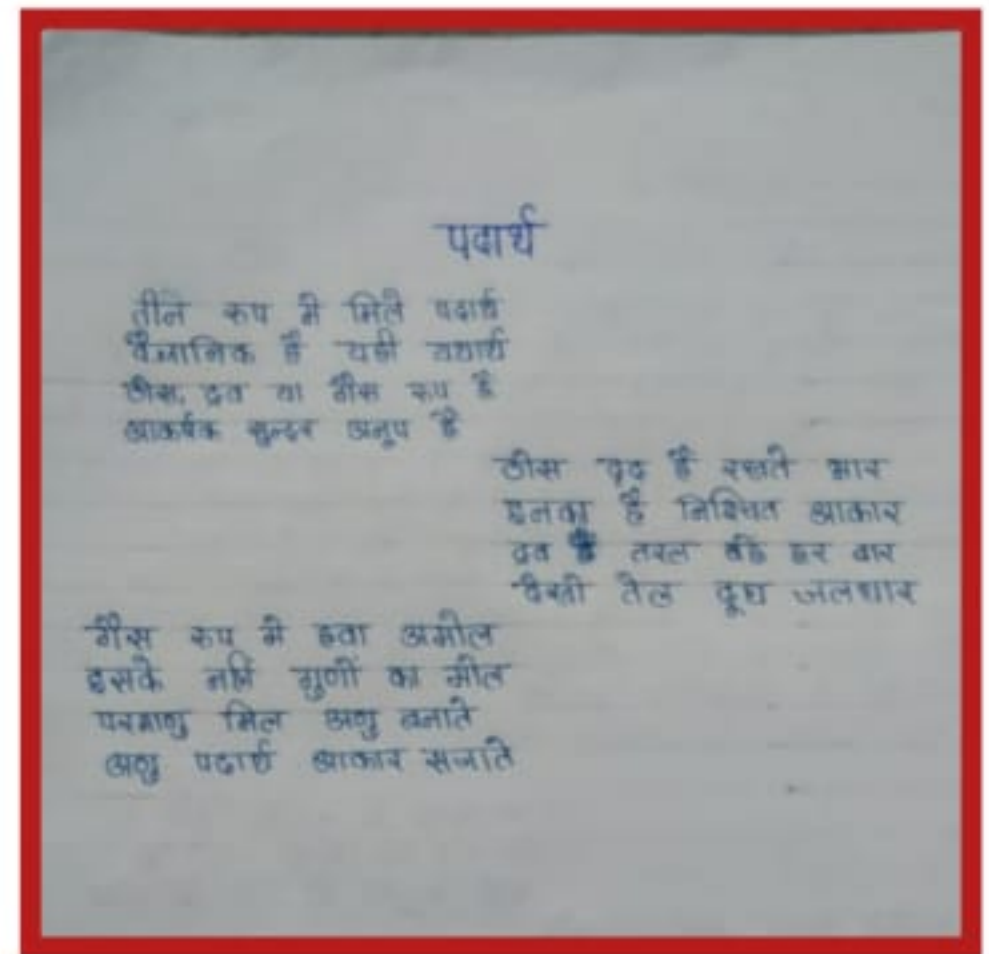 पदार्थ
तीन रूप में मिले पदार्थ
वैज्ञानिक है यही यथार्थ
ठोस, द्रव या गैस रूप है
आकर्षक सुन्दर अनुप है
ठोस दृढ़ है रखते भार
इनका है निश्चित आकार
द्रव है तरल बहे हर बार
जैसी तेल दूध जलधार
गैस रूप में हवा अमोल
इसके नहीं गुणों का मोल
परमाणु मिल अणु बनाते
अणु पदार्थ आकार सजाते